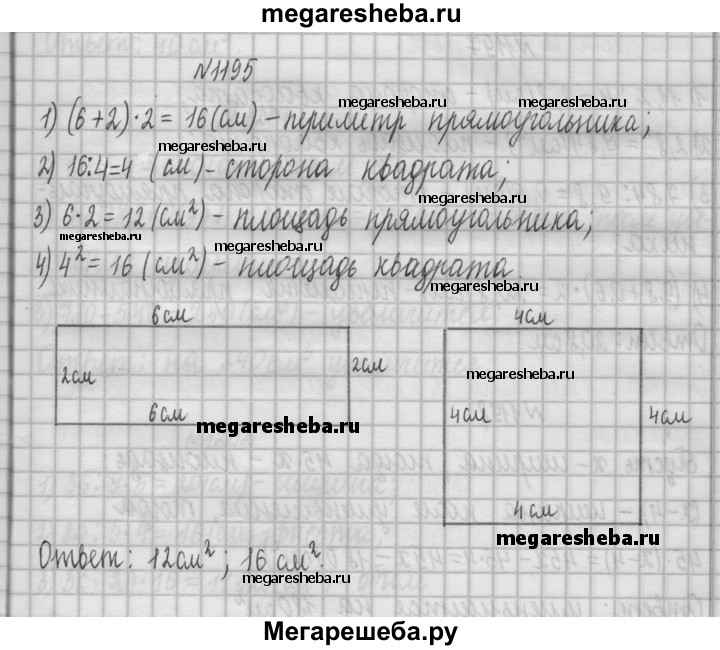 megaresheba.ru
N1195
megaresheba.ru megaresheba.ru
1) (6+2)·2= 16(см) – периметр прямоугольника;
megaresheba.ru
2) 16:4=4 (см) – сторона квадрата;
megaresheba.ru
3) 6·2=12(см²) – площадь прямоугольника;
megaresheba.ru megaresheba.ru
4) 4²= 16 (см²) – площадь квадрата.
megaresheba.ru
6см 4см
2см 2см megaresheba.ru
6см 4см 4см
megaresheba.ru
4см
megaresheba.ru
Ответ: 12см²; 16 см².
megaresheba.ru
Мегарешеба.ру